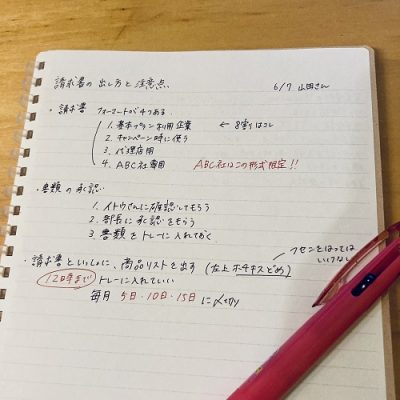 請求書の出し方と注意点
6/7 山田さん
・請求書 フォーマットが4つある
1. 基本プラン利用企業 ← 8割はコレ
2. キャンペーン時に使う
3. 代理店用
4. ABC社専用 ABC社はこの形式指定!!
・書類の承認
1. イトウさんに確認してもらう
2. 部長に承認をもらう
3. 書類をトレーに入れておく
フセンをはっては
いけない
・請求書といっしょに、商品リストを出す (左上ホチキスどめ)
12時まで トレーに入れていい
毎月 5日・10日・15日に〆切り